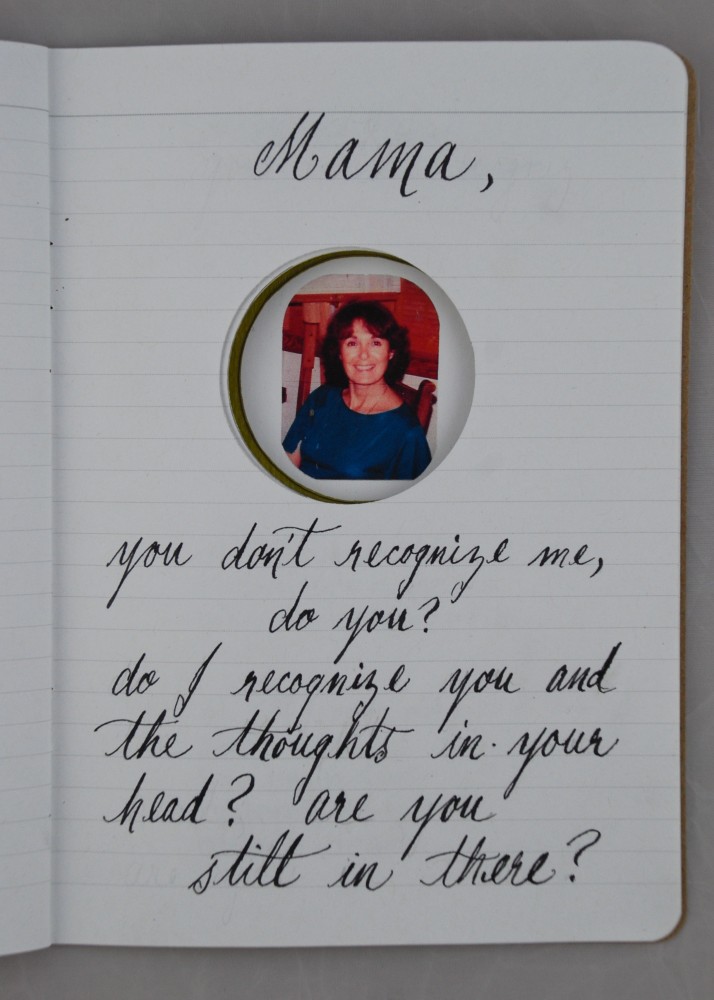 Mama,
you don't recognize me,
do you?
do I recognize you and
the thoughts in your
head? are you
still in there?